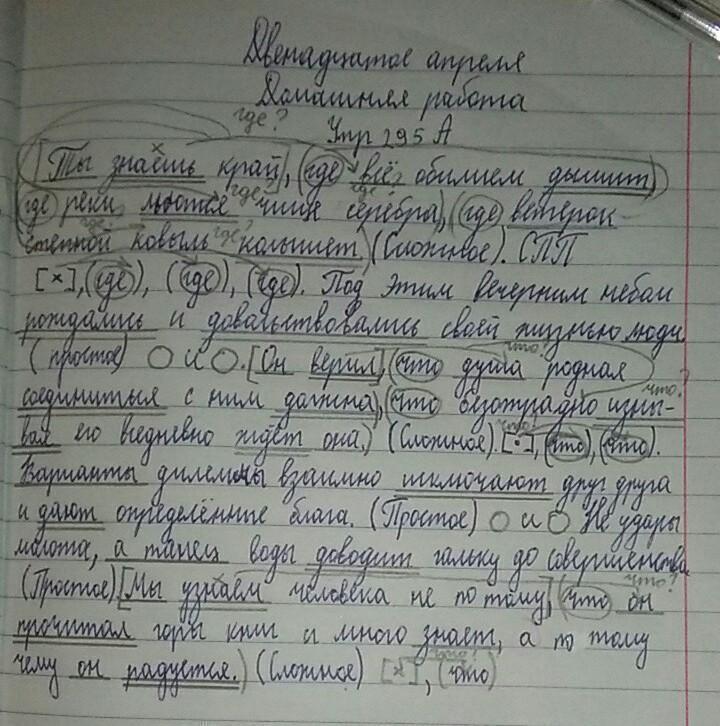 Двенадцатое апреля
Домашняя работа
где?
Упр 295 А
[Ты знаешь край], (где всё обилием дышит)
где? где?
где реки льются чище серебра), (где ветерок
где? где?
степной ковыль колышет.) (Сложное). СПП
[×], (где), (где), (где). Под этим вечерним небом
рождались и довольствовались своей жизнью люди
(простое) О и О. [Он верил], (что душа родная
что? что?
соединиться с ним должна), (что безотрадно изны-
что?
вая его вседневно ждёт она.) (Сложное). [•], (что), (что).
Варианты дилеммы взаимно исключают друг друга
и дают определённые блага. (Простое) О и О Не удары
молота, а танец воды доводит гальку до совершенства
что?
(Простое) [Мы узнаем человека не по тому], (что он
прочитал горы книг и много знает, а по тому
что?
чему он радуется.) (Сложное) [×], (что)